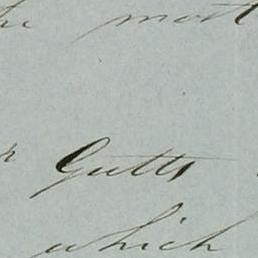 most
Gutts
which